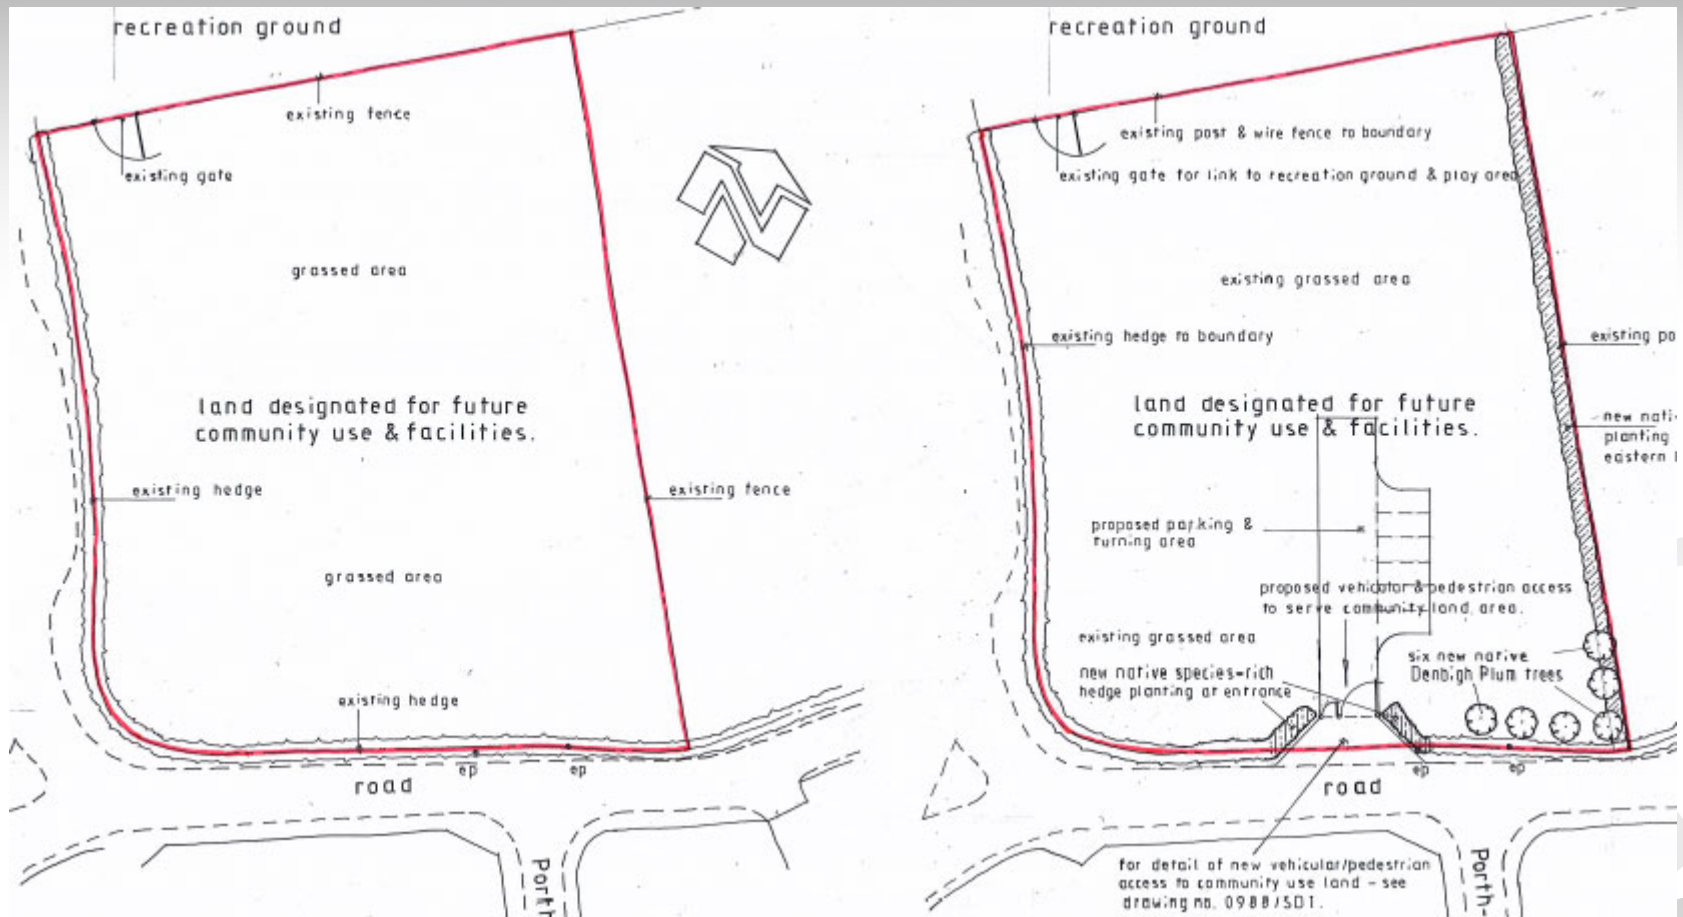 recreation ground
existing fence
existing gate
grassed area
land designated for future
community use & facilities.
existing hedge
existing fence
grassed area
existing hedge
ep
ep
road
Porth
recreation ground
existing post & wire fence to boundary
existing gate for link to recreation ground & play area
existing grassed area
existing hedge to boundary
existing po
land designated for future
community use & facilities.
new nati
planting
eastern
proposed parking &
turning area
proposed vehicular & pedestrian access
to serve community land area.
existing grassed area
new native species-rich
hedge planting at entrance
six new native
Denbigh Plum trees
ep
ep
road
for detail of new vehicular/pedestrian
access to community use land - see
drawing no. 0988/SD1.
Porth-